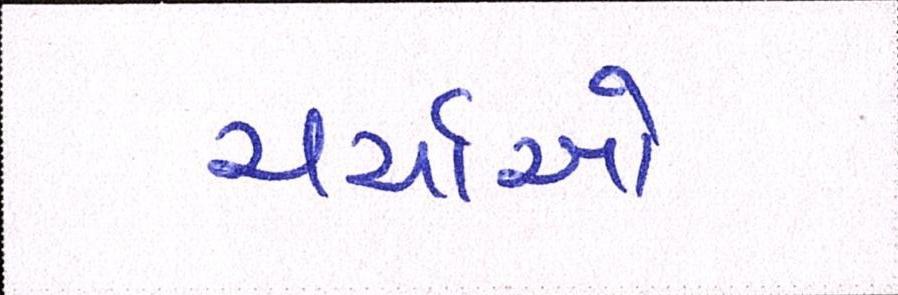 ચર્ચાઓ